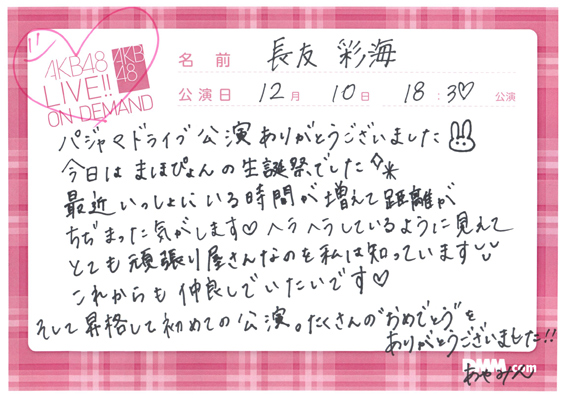 AKB48
LIVE!!
ON DEMAND
AKB
48
名前 長友 彩海
公演日 12月 10日 18:30 公演
パジャマドライブ公演ありがとうございました
今日はまほぴょんの生誕祭でした
最近いっしょにいる時間が増えて距離が
ちぢまった気がします♡ヘラヘラしているように見えて
とても頑張り屋さんなのを私は知っています
これからも仲良しでいたいです♡
そして昇格して初めての公演。たくさんの"おめでとう"を
ありがとうございました!!
DMM.com
あやみん